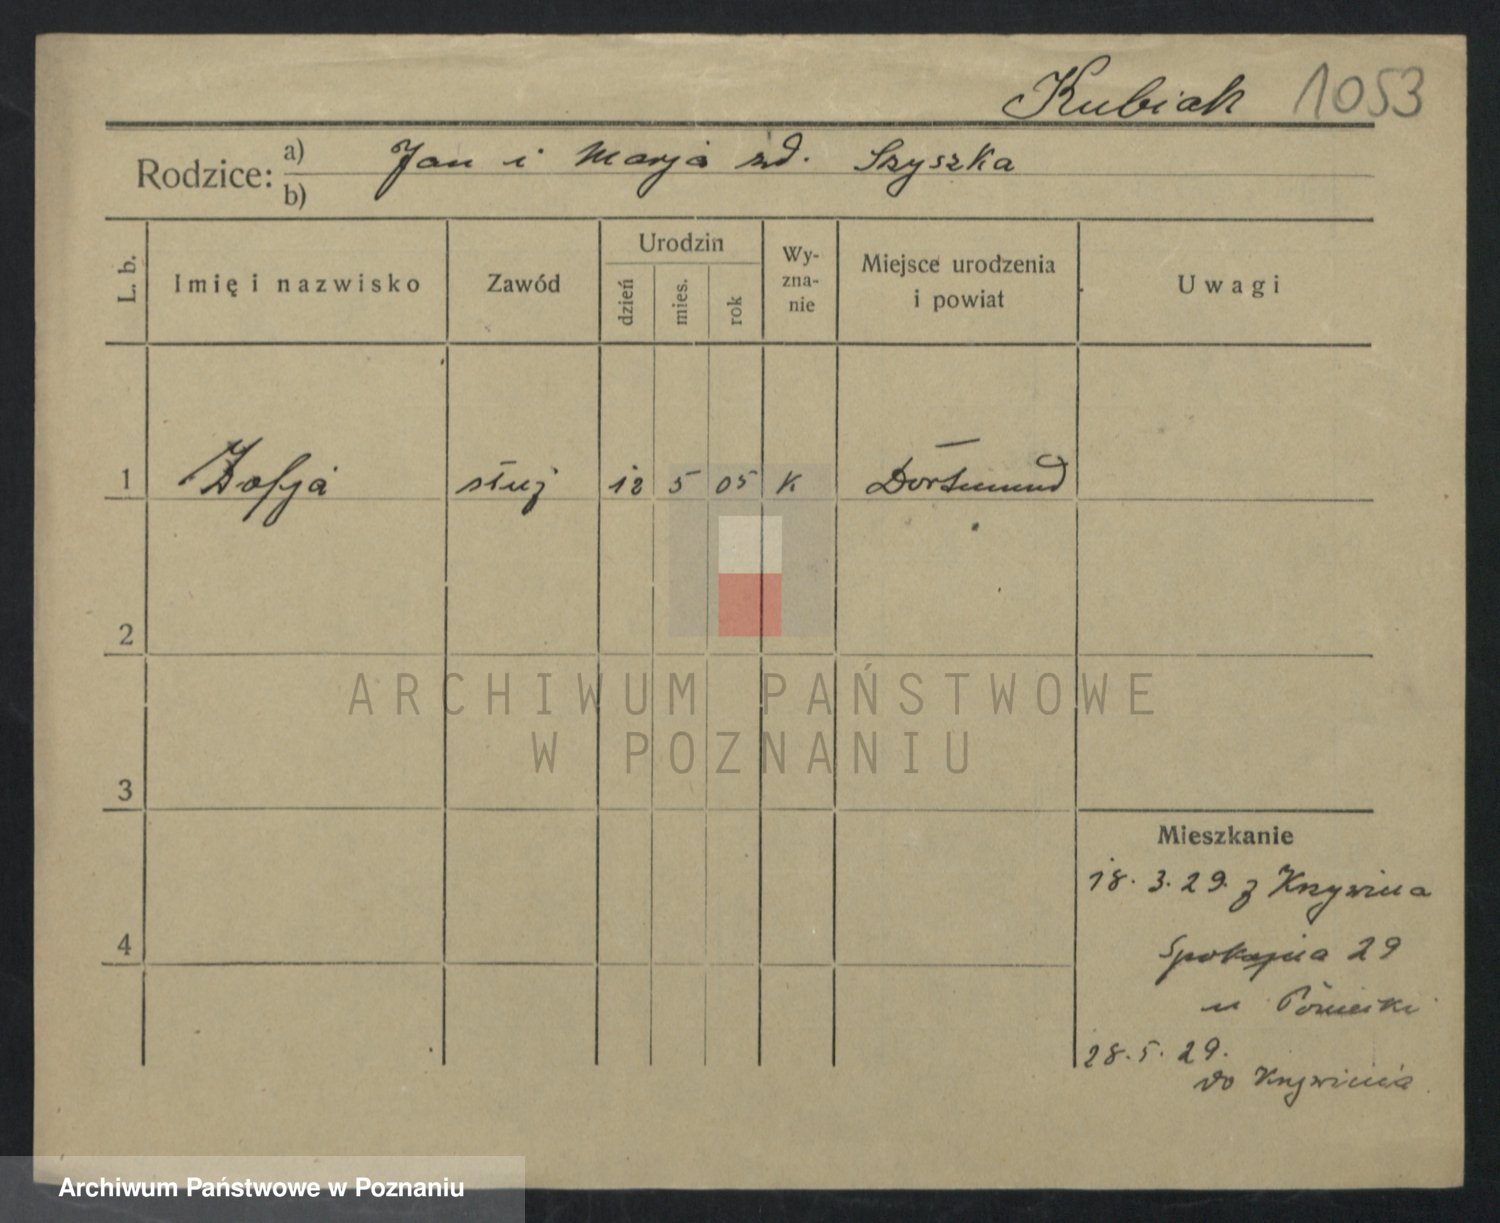 Kubiak 1053
Rodzice: a) b) Jan i Marja zd. Szyszka
L. b. Imię i nazwisko Zawód Urodzin dzień mies. rok Wy-zna-nie Miejsce urodzenia i powiat Uwagi
1 Zofja służ 12 5 05 K Dortmund
2
ARCHIWUM PAŃSTWOWE
W POZNANIU
3
Mieszkanie
18. 3. 29. z Krzywina
4
Spokojna 29
u
28. 5. 29.
do Krzywinia
Archiwum Państwowe w Poznaniu